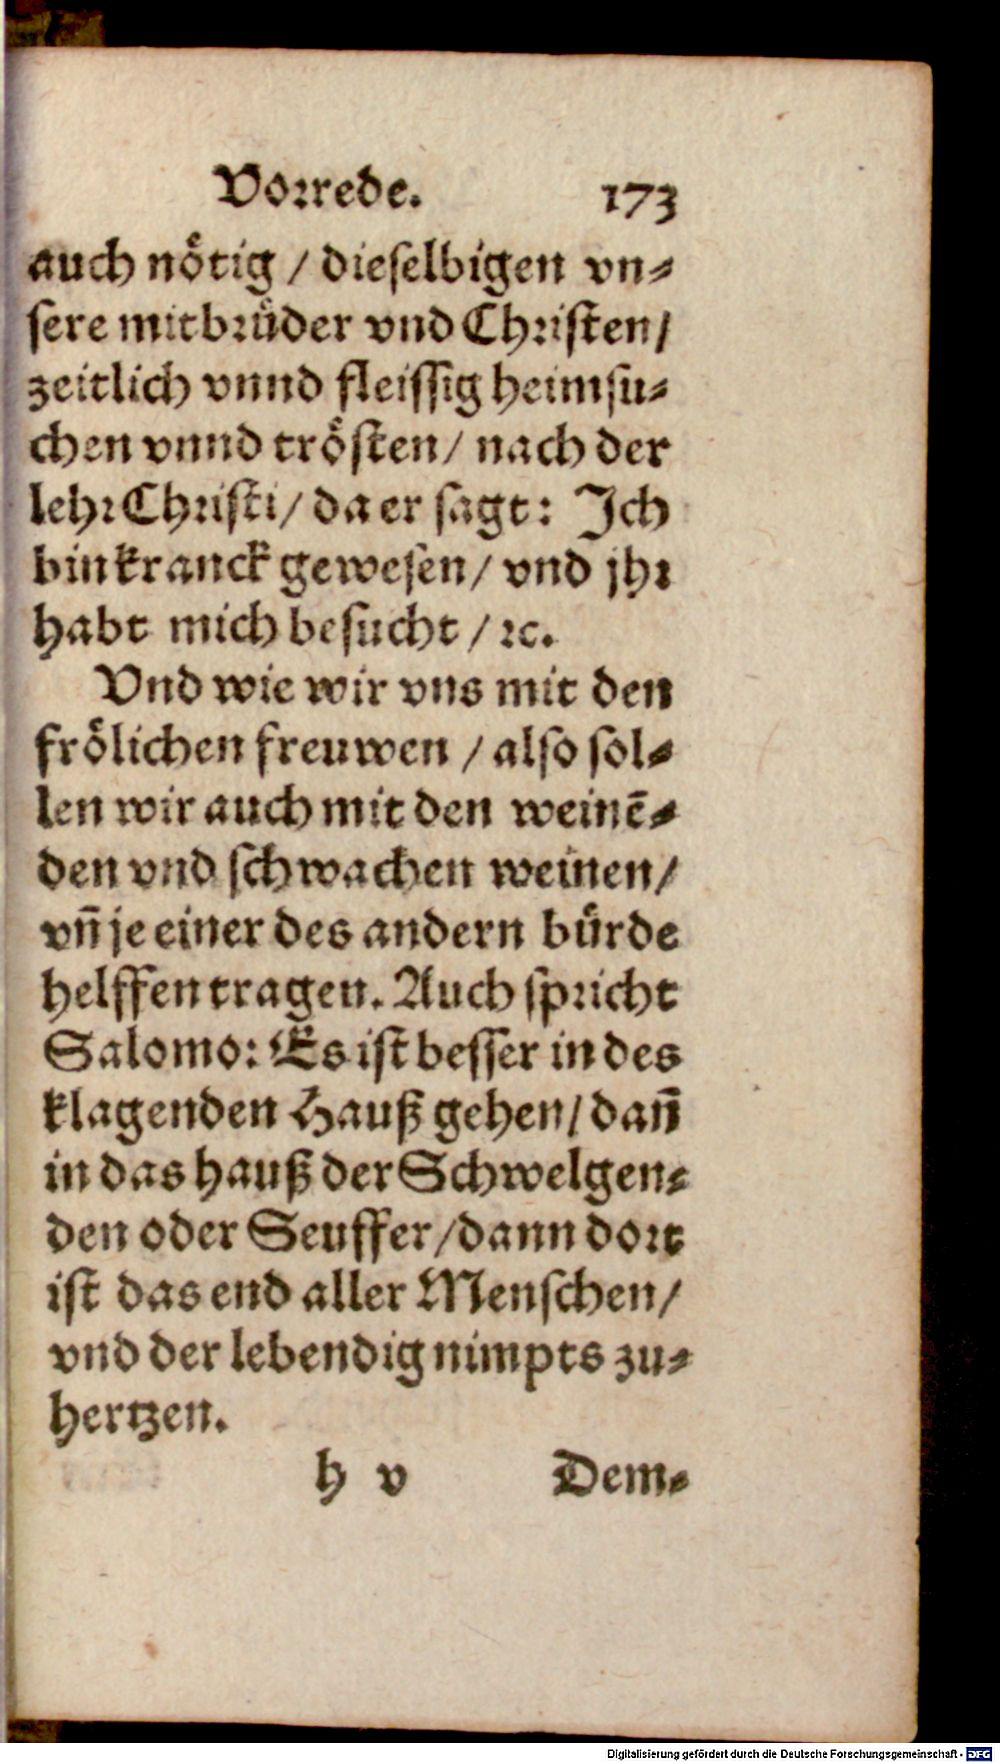 Vorrede. 173
auch nötig / dieselbigen vn-
sere mitbrüder vnd Christen/
zeitlich vnnd fleissig heimsu-
chen vnnd trösten/ nach der
lehr Christi/ da er sagt: Ich
bin kranck gewesen/ vnd jhr
habt mich besucht / ꝛc.
Vnd wie wir vns mit den
frölichen freuwen / also sol-
len wir auch mit den weinē-
den vnd schwachen weinen/
vn̄ je einer des andern bürde
helffen tragen. Auch spricht
Salomo: Es ist besser in des
klagenden Hauß gehen/ dan̄
in das hauß der Schwelgen-
den oder Seuffer/dann dort
ist das end aller Menschen/
vnd der lebendig nimpts zu-
hertzen.
h v Dem-
Digitalisierung gefördert durch die Deutsche Forschungsgemeinschaft - DFG